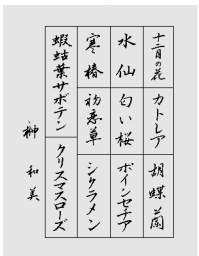 十二月の花
カトレア
胡蝶蘭
水仙
匂い桜
ポインセチア
寒椿
初恋草
シクラメン
蝦蛄葉サボテン
クリスマスローズ
榊和美